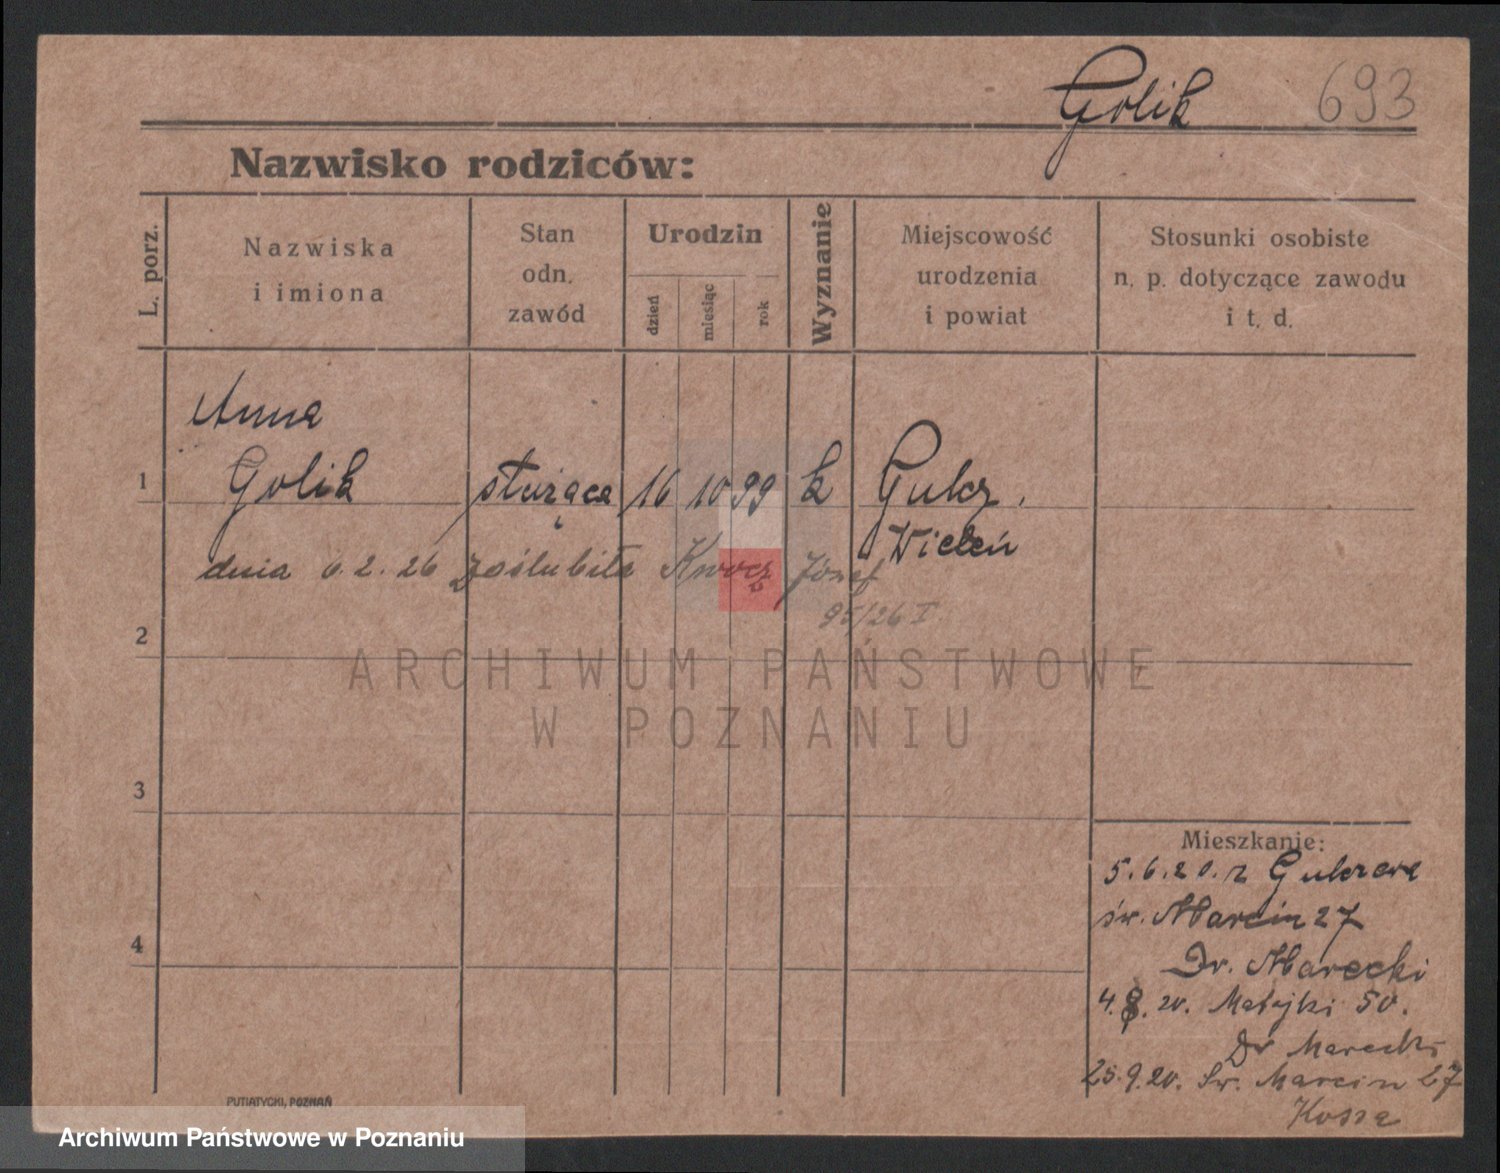 Golik 693
Nazwisko rodziców:
L. porz.
Nazwiska
i imiona
Stan
odn.
zawód
Urodzin
dzień
miesiąc
rok
Wyznanie
Miejscowość
urodzenia
i powiat
Stosunki osobiste
n. p. dotyczące zawodu
i t. d.
Anna
1 Golik służąca 16 10 99 k Gulcz,
Wieleń
dnia 6.2.26 zaślubiła Józef
95/26 I
2
ARCHIWUM PAŃSTWOWE
W POZNANIU
3
Mieszkanie:
5.6.20. z Gulcza
św. Marcin 27
Dr. Marecki
4
4.8.20. Matejki 50.
Dr Marecki
25.9.20. Św. Marcin 27
PUTIATYCKI, POZNAŃ
Archiwum Państwowe w Poznaniu